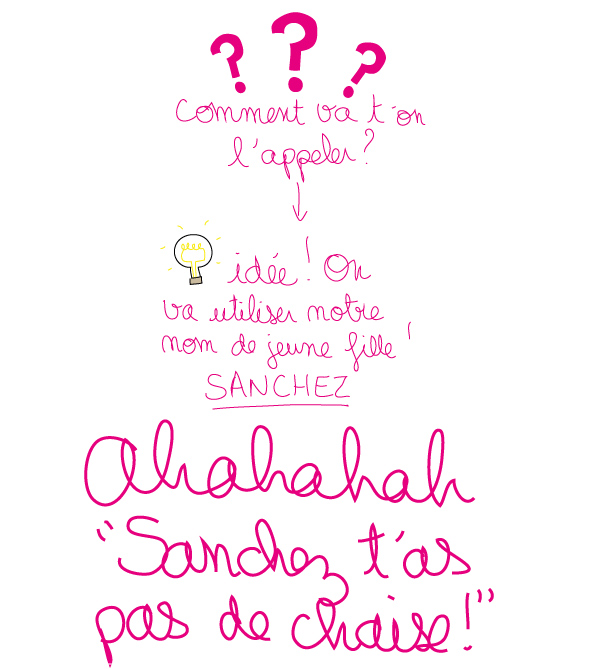 ? ? ?
Comment va t-on
l'appeler?
idée! On
va utiliser notre
nom de jeune fille!
SANCHEZ
Ahahahah
"Sanchez t'as
pas de chaise!"